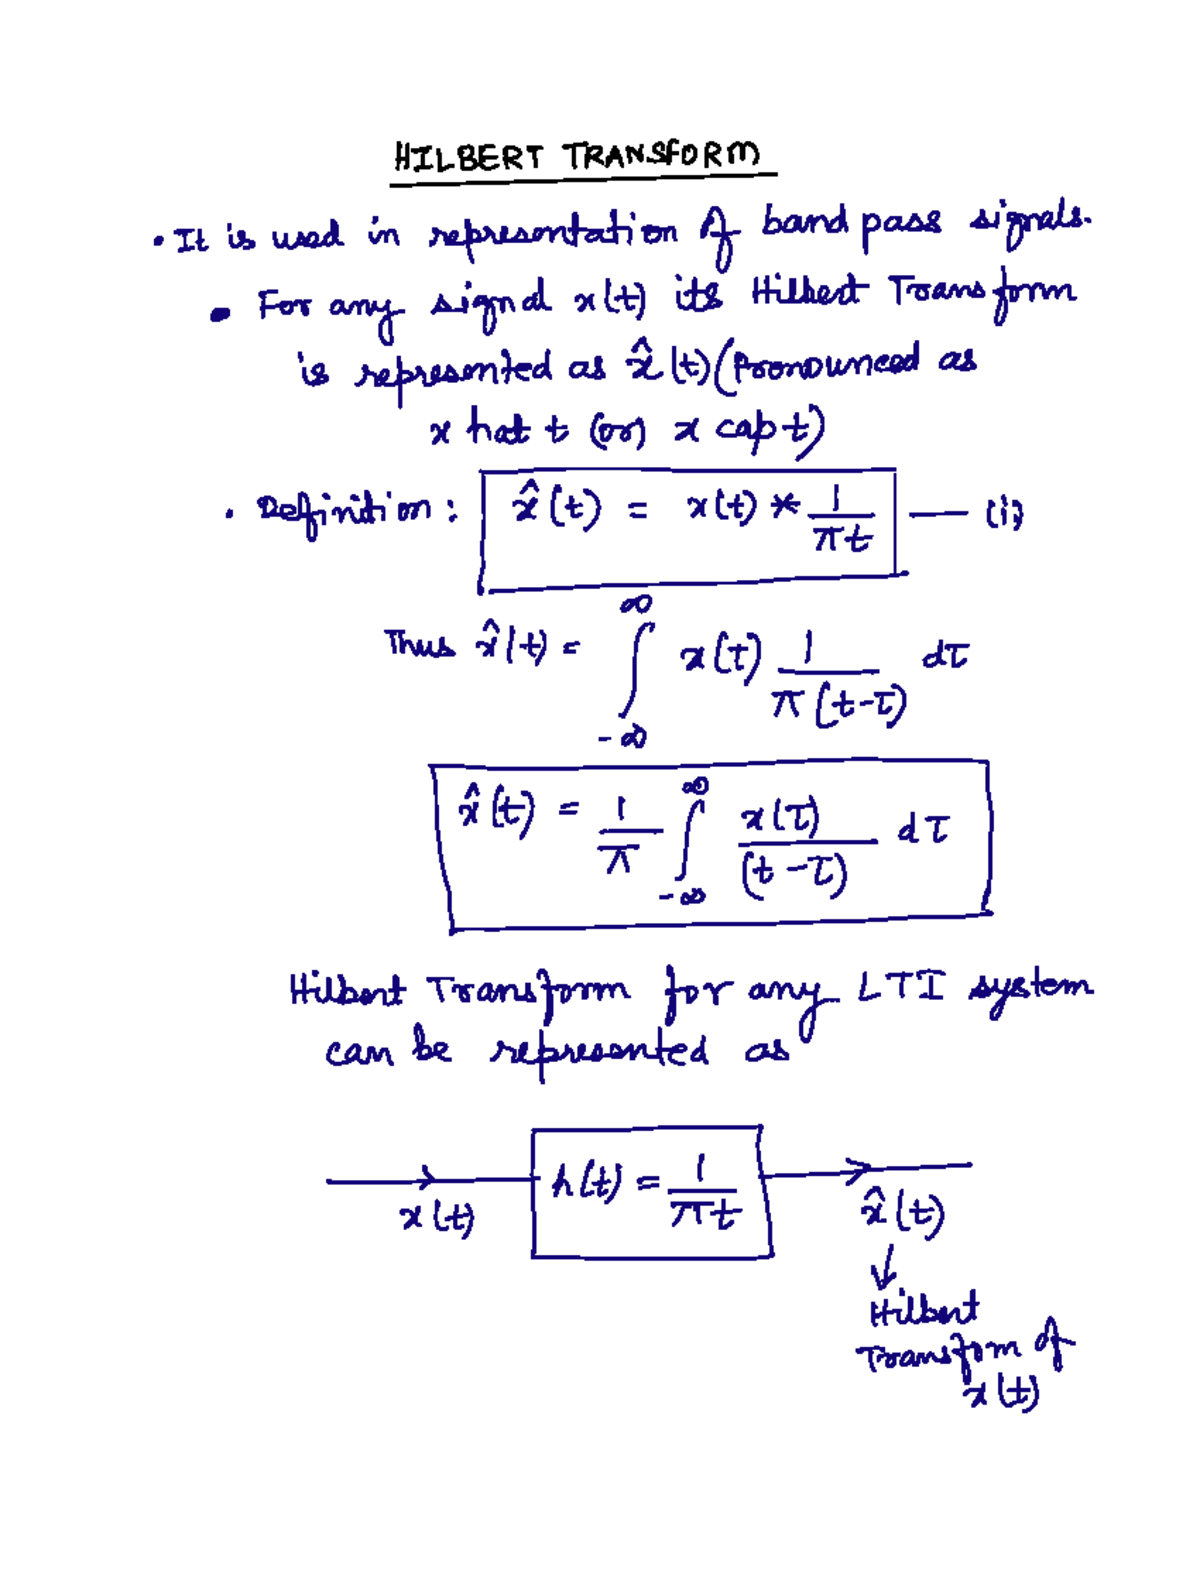 HILBERT TRANSFORM
• It is used in representation of band pass signals.
• For any signal x(t) its Hilbert Transform
is represented as x̂(t) (Pronounced as
x hat t (or) x cap t)
• Definition : x̂(t) = x(t) * 1/πt — (i)
Thus x̂(t) = ∫_{-∞}^{∞} x(τ) 1/π(t-τ) dτ
x̂(t) = 1/π ∫_{-∞}^{∞} x(τ)/(t-τ) dτ
Hilbert Transform for any LTI system
can be represented as
x(t) h(t) = 1/πt x̂(t)
Hilbert
Transform of
x(t)